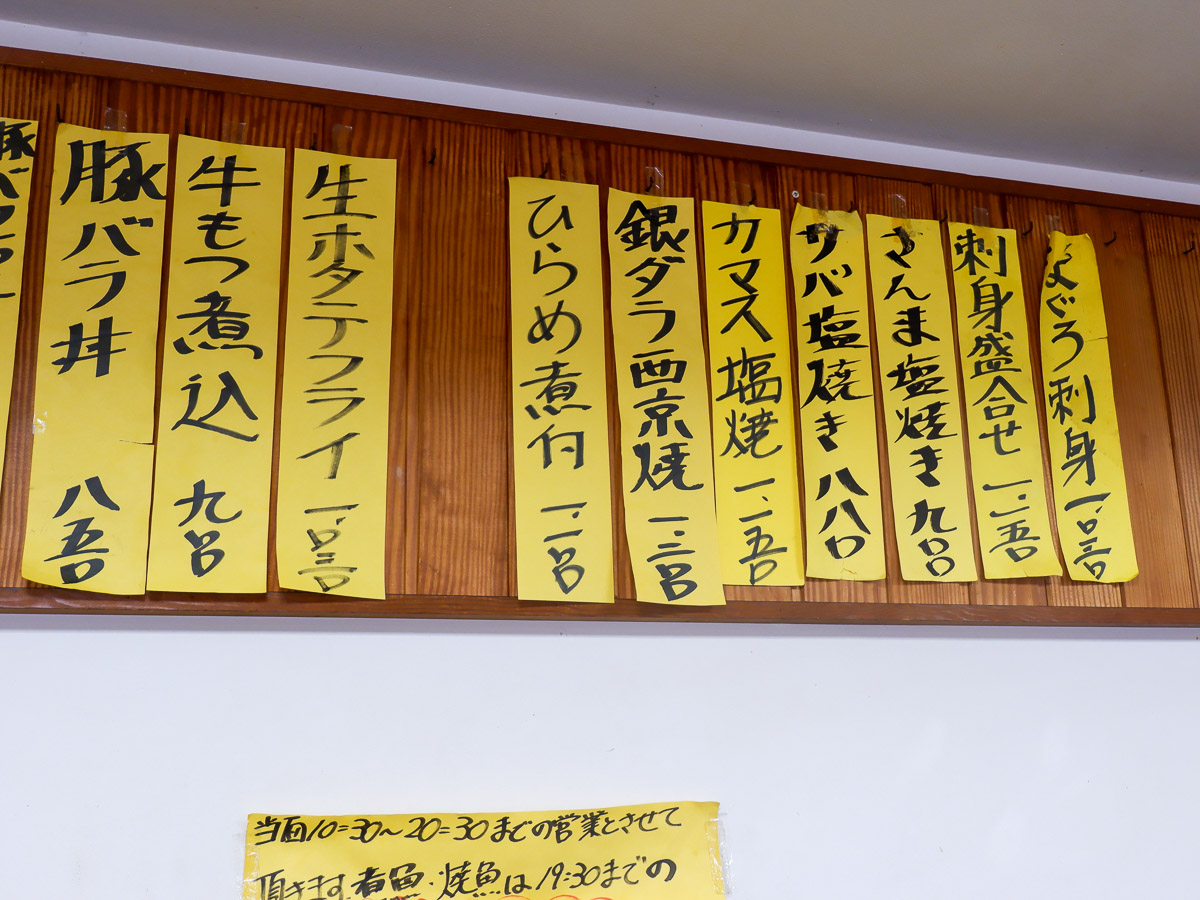 まぐろ刺身 一、〇三〇
刺身盛合せ 一、一五〇
さんま塩焼き 九〇〇
サバ塩焼き 八八〇
カマス塩焼 一、一五〇
銀ダラ西京焼 一、三〇〇
ひらめ煮付 一、一〇〇
生ホタテフライ 一、〇三〇
牛もつ煮込 九〇〇
豚バラ丼 八五〇
豚バラ
当面10:30〜20:30までの営業とさせて
頂きます。煮魚・焼魚は19:30までの